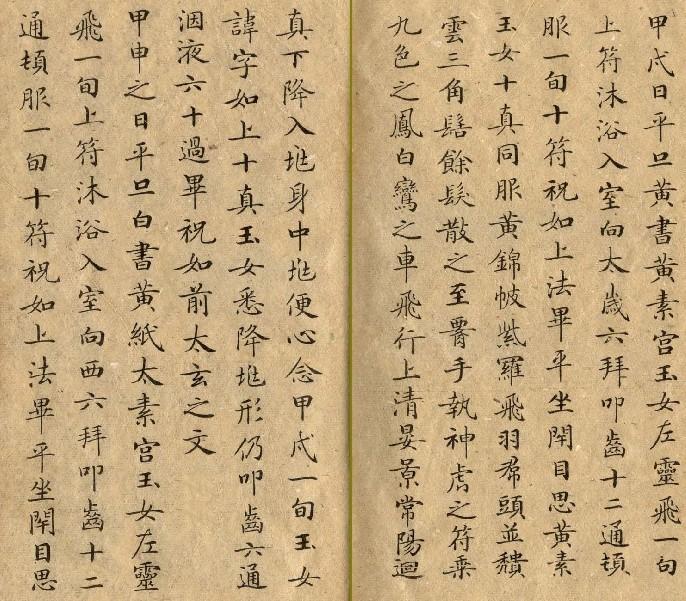 甲戌日平旦黃書黃素宫玉女左靈飛一旬
上符沐浴入室向太歲六拜叩齒十二通頓
服一旬十符祝如上法畢平坐閇目思黃素
玉女十真同服黃錦帔紫羅飛羽帬頭並頹
雲三角髻餘髮散之至𦝫手執神虎之符乘
九色之鳳白鸞之車飛行上清晏景常陽迴
真下降入𠰥身中𠰥便心念甲戌一旬玉女
諱字如上十真玉女悉降𠰥形仍叩齒六通
咽液六十過畢祝如前太玄之文
甲申之日平旦白書黃紙太素宫玉女左靈
飛一旬上符沐浴入室向西六拜叩齒十二
通頓服一旬十符祝如上法畢平坐閇目思